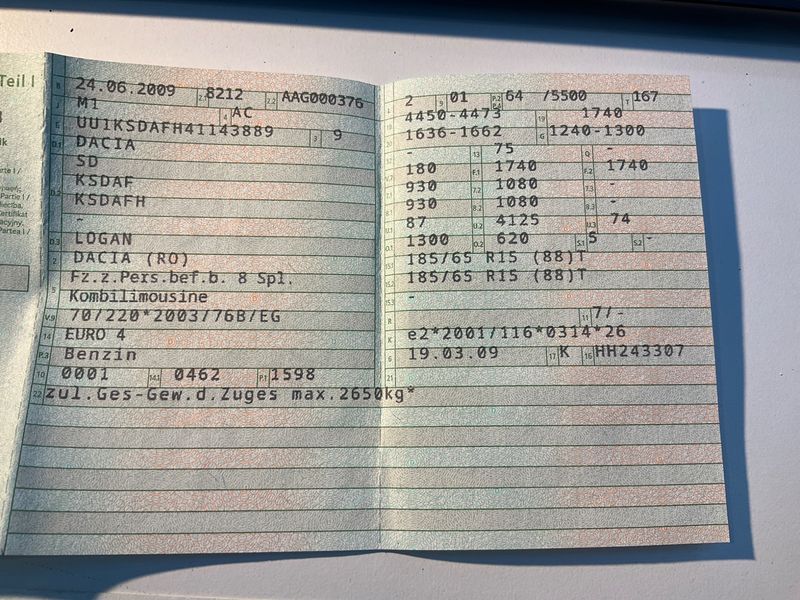 Teil I
B 24.06.2009 2.1 8212 2.2 AAG000376
J M1 4 AC
E UU1KSDAFH41143889 3 9
D.1 DACIA
SD
D.2 KSDAF
KSDAFH
-
D.3 LOGAN
2 DACIA (RO)
5 Fz.z.Pers.bef.b. 8 Spl.
Kombilimousine
V.9 70/220*2003/76B/EG
14 EURO 4
P.3 Benzin
10 0001 14.1 0462 P.1 1598
22 zul.Ges-Gew.d.Zuges max.2650kg*
L 2 9 01 P.2 P.4 64 /5500 T 167
18 4450-4473 19 1740
20 1636-1662 G 1240-1300
- 13 75 Q -
V.7 180 F.1 1740 F.2 1740
7.1 930 7.2 1080 7.3 -
8.1 930 8.2 1080 8.3 -
U.1 87 U.2 4125 U.3 74
O.1 1300 O.2 620 S.1 5 S.2 -
15.1 185/65 R15 (88)T
15.2 185/65 R15 (88)T
15.3 -
R 11 7/-
K e2*2001/116*0314*26
6 19.03.09 17 K 16 HH243307
21